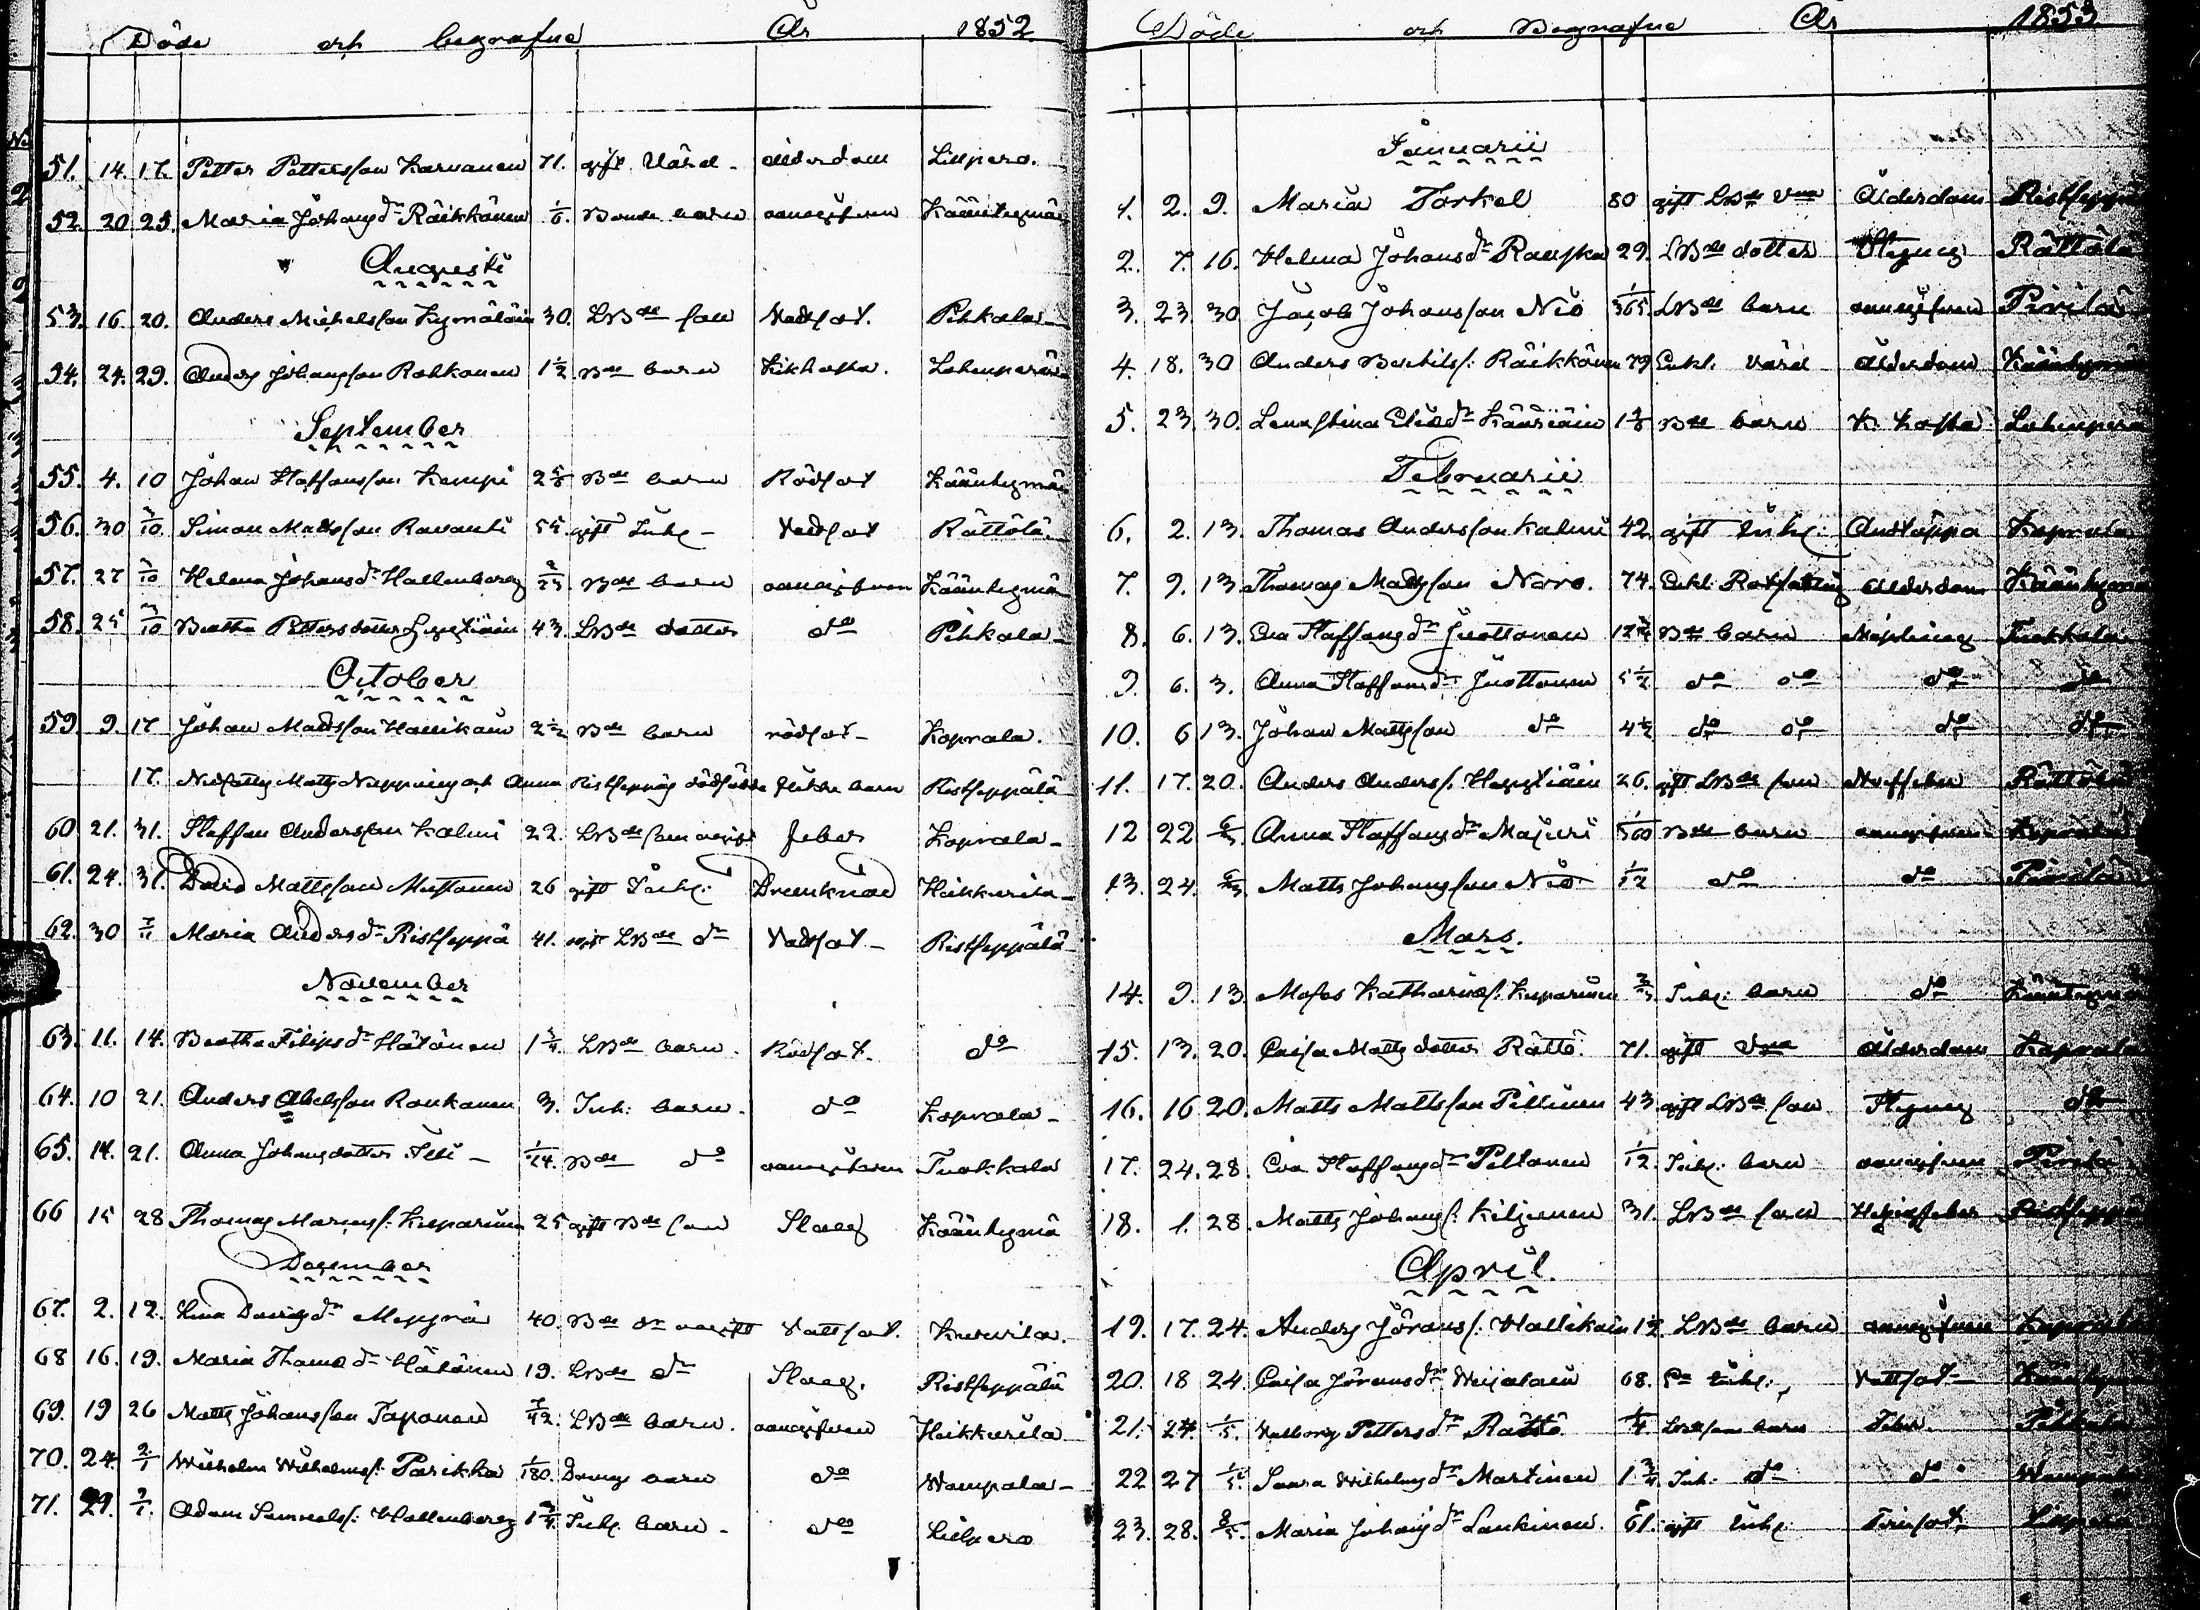 Döde och begrafne År 1852
51. 14. 17. Petter Pettersson Karvanen 71. gift Värd - ålderdom Lillpero.
52. 20 25. Maria Johansdr Räikkönen 1/6. Bonde barn oangifven Kääntymä
Augusti
53. 16. 20. Anders Michelsson Kymäläin 30. LBde son Vadsot. Pihkala
54. 24. 29. Anders Johansson Rohkanen 1 1/2 Bde barn Kikhosta. Lohenperä
September
55. 4. 10 Johan Staffansson Kempi 2 5/6 Bde barn Rödsot Kääntymä
56. 30 3/10 Simon Mattsson Ravanti 55. gift Inh. - Vadsot Rättölä
57. 27 3/10 Helena Johansdr Hallenberg 2/25 Bde barn oangifven Kääntymä
58. 25 3/10 Beatha Pettersdotter 43. LBde dotter do Pihkala
October
59. 9. 17 Johan Mattsson Hallikain 2 1/2 Bde barn rödsot Koprala.
17. Anna Ristseppäs dödfödde flicke barn Ristseppälä
60 21. 31. Staffan Andersson Kalmi 22. LBde son ogift feber Koprala
61. 24. 31. David Mattsson Mustonen 26 gift Inh. Drunknad Heikkurila
62. 30 7/11 Maria Andersdr Ristseppä 41. ogift LBde dr Vadsot Ristseppälä
November
63. 11. 14. Beatha Filipsdr Hätönen 1 3/4. LBde barn. Rödsot. do
64. 10 21. Anders Abelsson Ronkanen 3. Inh. barn. do Koprala
65. 14. 21. Anna Johansdotter Illi 1/24. Bde do oangifven Tuokkola
66 15 28 Thomas Marcuss. Kuparinen 25 gift Bde son Slag Kääntymä
December
67. 2. 12. Davidsdr 40. Bde dr ogift Vattsot. Kurvila.
68 16. 19. Maria Thomædr Hätönen 19. LBde dr Slag. Ristseppälä
69. 19 26 Matts Johansson Taponen 7/12. LBde barn. oangifven Heikkurila
70. 24. 2/1 Wilhelm Wilhelmss. Parikka 1/180. Drengs barn do Wampala
71. 29. 2/1. Adam Samuelss. Hallenberg 1 3/4. Inh. barn do Lillpero
Döde och Begrafne År 1853
Januarii
1. 2. 9. Maria Torkel 80 gift LBde Vna Ålderdom Ristseppä
2. 7. 16. Helena Johansdr Rauska 29. LBde dotter Styng Rättölä
3. 23. 30 Jacob Johansson Niö 1/365. LBde barn oangifven Pirilä
4. 18. 30 Anders Bertilss. Räikkönen 79 Enkl. värd Ålderdom Kääntymä
5. 23. 30. Lenastina Eliædr Kääriäin Bde barn K. hosta Lohenperä
Februarii
6. 2. 13. Thomas Andersson Kalmi 42. gift Inh. Andtäppa Koprala
7. 9. 13 Thomas Mattsson Noro. 74. Enkl. ålderdom Kääntymä
8. 6. 13. Eva Staffansdr Juottonen Bde barn Mässling Tuokkola
9. 6. 3. Anna Staffansdr Juottonen 5 1/2 do do do do
10. 6 13. Johan Mattsson do 4 1/2 do do do do
11. 17. 20. Anders Anderss. 26. gift LBde son Rättölä
12 22 6/3 Anna Staffansdr Majuri 1/360 Bde barn oangifven Koprala
13. 24. 6/3 Matts Johansson Niö 1/12 do do Pirilä
Mars.
14. 9. 13 Moses Katharinæs. Kuparinen Inh. barn do Kääntymä
15. 13. 20. Caisa Matts dotter Rättö. 71. gift Vna Ålderdom Koprala
16. 16 20. Matts Mattsson Pillinen 43 gift LBde son Styng do
17. 24. 28. Eva Staffansdr Peltonen 1/12. Inh. barn oangifven Pirilä
18. 1. 28. Matts Johanss. Kiljunen 31. LBde son Ristseppä
April.
19. 17. 24. Anders Jöranss. Hallikain 12. LBde barn oangifven Koprala
20. 18 24. Caisa Jöransdr 68. Inh. Vattsot Kääntymä
21. 24. 1/5. Valborg Pettersdr Rättö 1/4. barn Feber. Pihkala
22 27 1/5. Saara Wilhelmsdr Martinen 1 3/4 Inh. do do Wampala
23. 28. 8/5. Maria Johansdr Lankinen. 61. gift Inh.